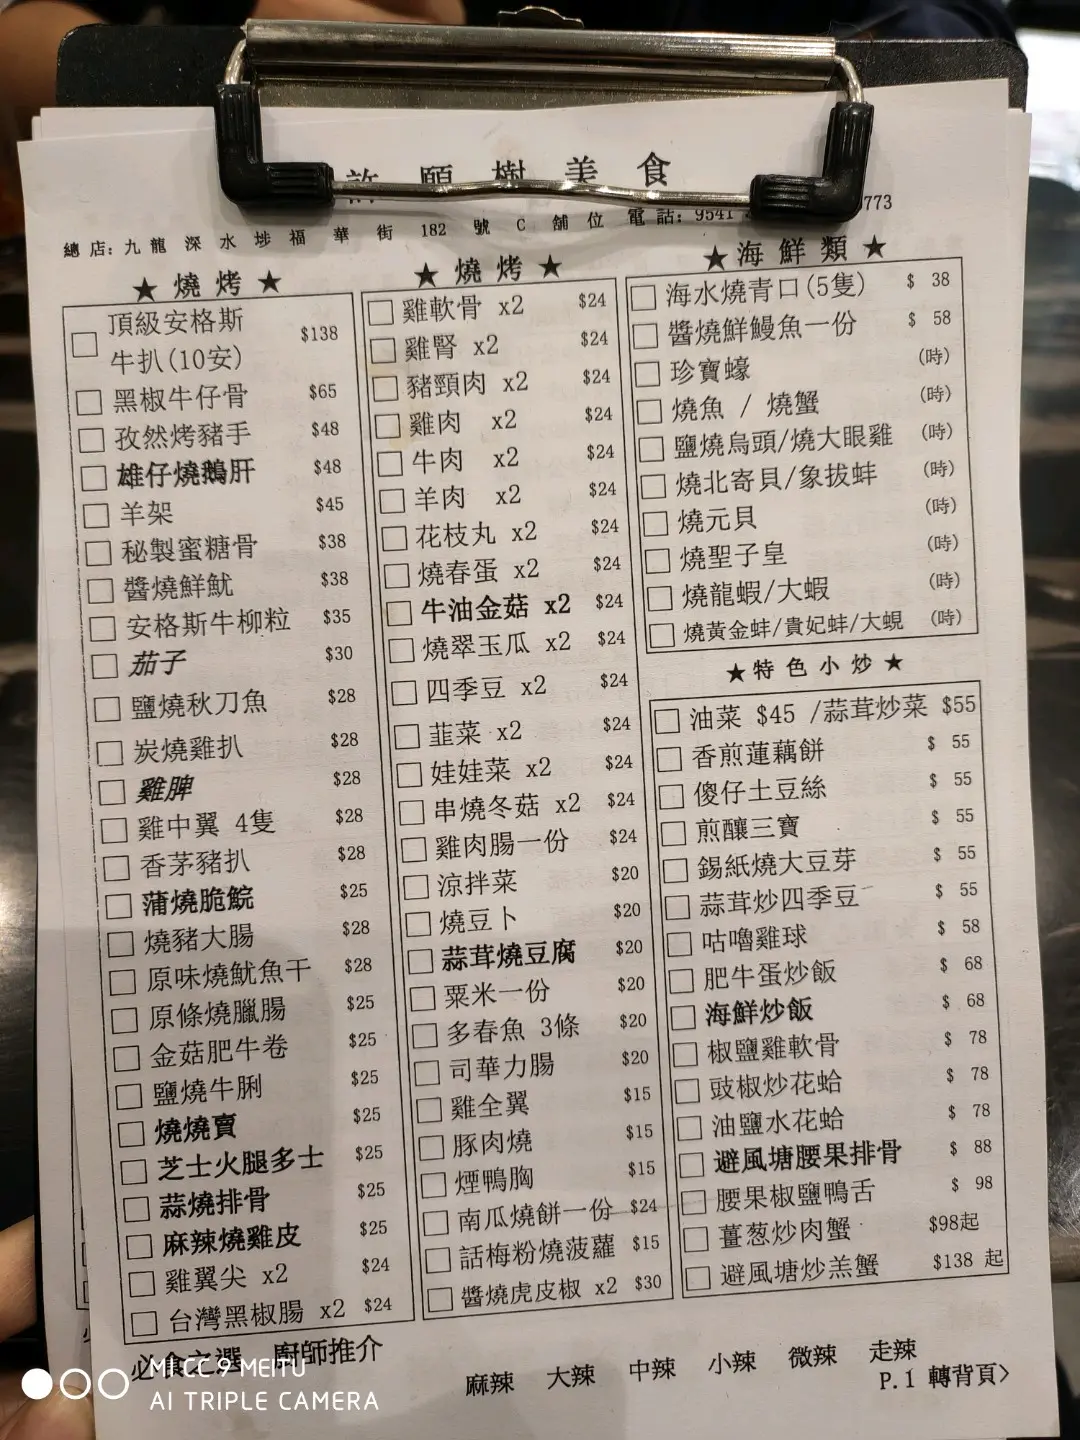 許願樹美食
總店:九龍深水埗福華街 182 號 C 舖位 電話: 9541
0773
★ 燒烤 ★
頂級安格斯
牛扒(10安) $138
黑椒牛仔骨 $65
孜然烤豬手 $48
雄仔燒鵝肝 $48
羊架 $45
秘製蜜糖骨 $38
醬燒鮮魷 $38
安格斯牛柳粒 $35
茄子 $30
鹽燒秋刀魚 $28
炭燒雞扒 $28
雞脾 $28
雞中翼 4隻 $28
香茅豬扒 $28
蒲燒脆鯇 $25
燒豬大腸 $28
原味燒魷魚干 $28
原條燒臘腸 $25
金菇肥牛卷 $25
鹽燒牛脷 $25
燒燒賣 $25
芝士火腿多士 $25
蒜燒排骨 $25
麻辣燒雞皮 $25
雞翼尖 x2 $24
台灣黑椒腸 x2 $24
★ 燒烤 ★
雞軟骨 x2 $24
雞腎 x2 $24
豬頸肉 x2 $24
雞肉 x2 $24
牛肉 x2 $24
羊肉 x2 $24
花枝丸 x2 $24
燒春蛋 x2 $24
牛油金菇 x2 $24
燒翠玉瓜 x2 $24
四季豆 x2 $24
韮菜 x2 $24
娃娃菜 x2 $24
串燒冬菇 x2 $24
雞肉腸一份 $24
涼拌菜 $20
燒豆卜 $20
蒜茸燒豆腐 $20
粟米一份 $20
多春魚 3條 $20
司華力腸 $20
雞全翼 $15
豚肉燒 $15
煙鴨胸 $15
南瓜燒餅一份 $24
話梅粉燒菠蘿 $15
醬燒虎皮椒 x2 $30
★ 海鮮類 ★
海水燒青口(5隻) $ 38
醬燒鮮鰻魚一份 $ 58
珍寶蠔 (時)
燒魚 / 燒蟹 (時)
鹽燒烏頭/燒大眼雞 (時)
燒北寄貝/象拔蚌 (時)
燒元貝 (時)
燒聖子皇 (時)
燒龍蝦/大蝦 (時)
燒黃金蚌/貴妃蚌/大蜆 (時)
★ 特色小炒 ★
油菜 $45 /蒜茸炒菜 $55
香煎蓮藕餅 $ 55
傻仔土豆絲 $ 55
煎釀三寶 $ 55
錫紙燒大豆芽 $ 55
蒜茸炒四季豆 $ 55
咕嚕雞球 $ 58
肥牛蛋炒飯 $ 68
海鮮炒飯 $ 68
椒鹽雞軟骨 $ 78
豉椒炒花蛤 $ 78
油鹽水花蛤 $ 78
避風塘腰果排骨 $ 88
腰果椒鹽鴨舌 $ 98
薑葱炒肉蟹 $98起
避風塘炒羔蟹 $138 起
必食之選 廚師推介
麻辣 大辣 中辣 小辣 微辣 走辣
P.1 轉背頁>
MI CC 9 MEITU
AI TRIPLE CAMERA